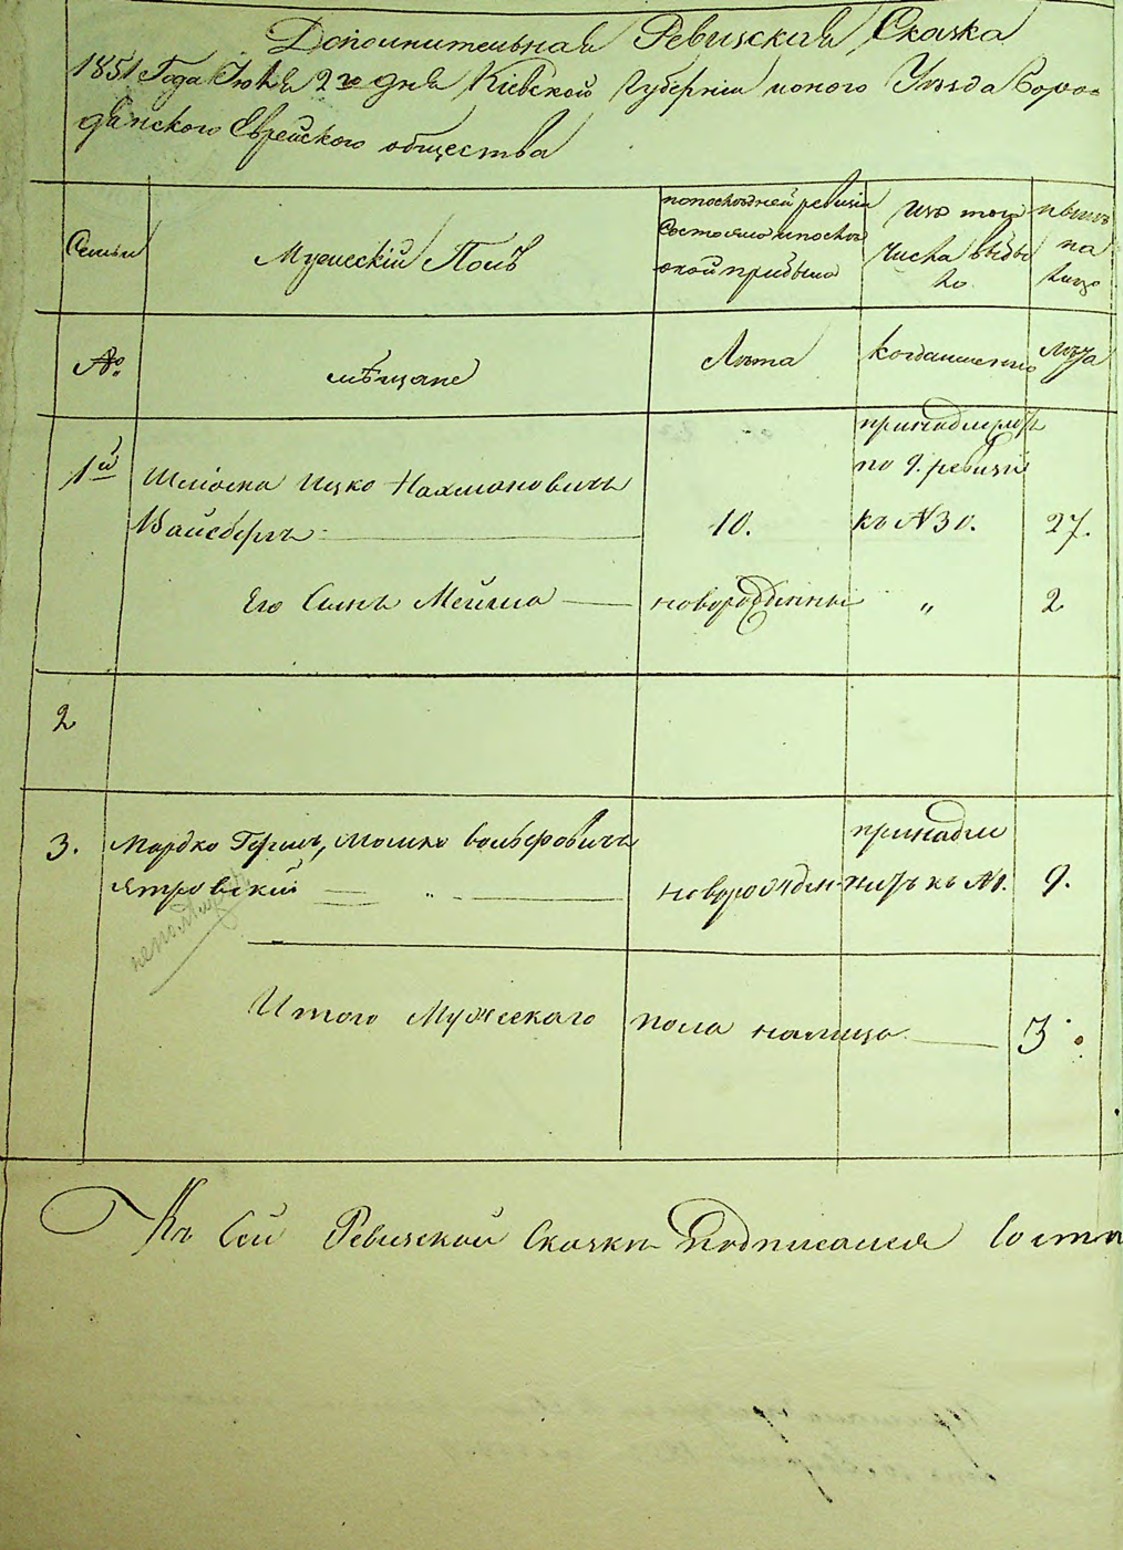 Дополнительная Ревизская Сказка
1851 Года Іюня 2го дня Кіевской Губерніи Уѣзда Боро=
дянского Еврейского общества
Семьи
Мужескій Полъ
по последней ревизіи
состояло и после
оной прибыло
Изъ того
числа выбы
ло
ныне
на
лицо
№
мѣщане
Лѣта
когда именно
лѣта
1й
Ицко Нахмановичъ
Вайсбергъ
10.
принадлежитъ
по 9. ревизіи
къ № 30.
27.
Его Сынъ
новорожденный
"
2
2
3.
Мордко Гершъ, Мошко Вольфовичъ
Ятровскій
новорожден
принадле
житъ къ № 1.
9.
Итого Мужескаго пола налицо
3
Къ Сей Ревизской Сказки Подписался